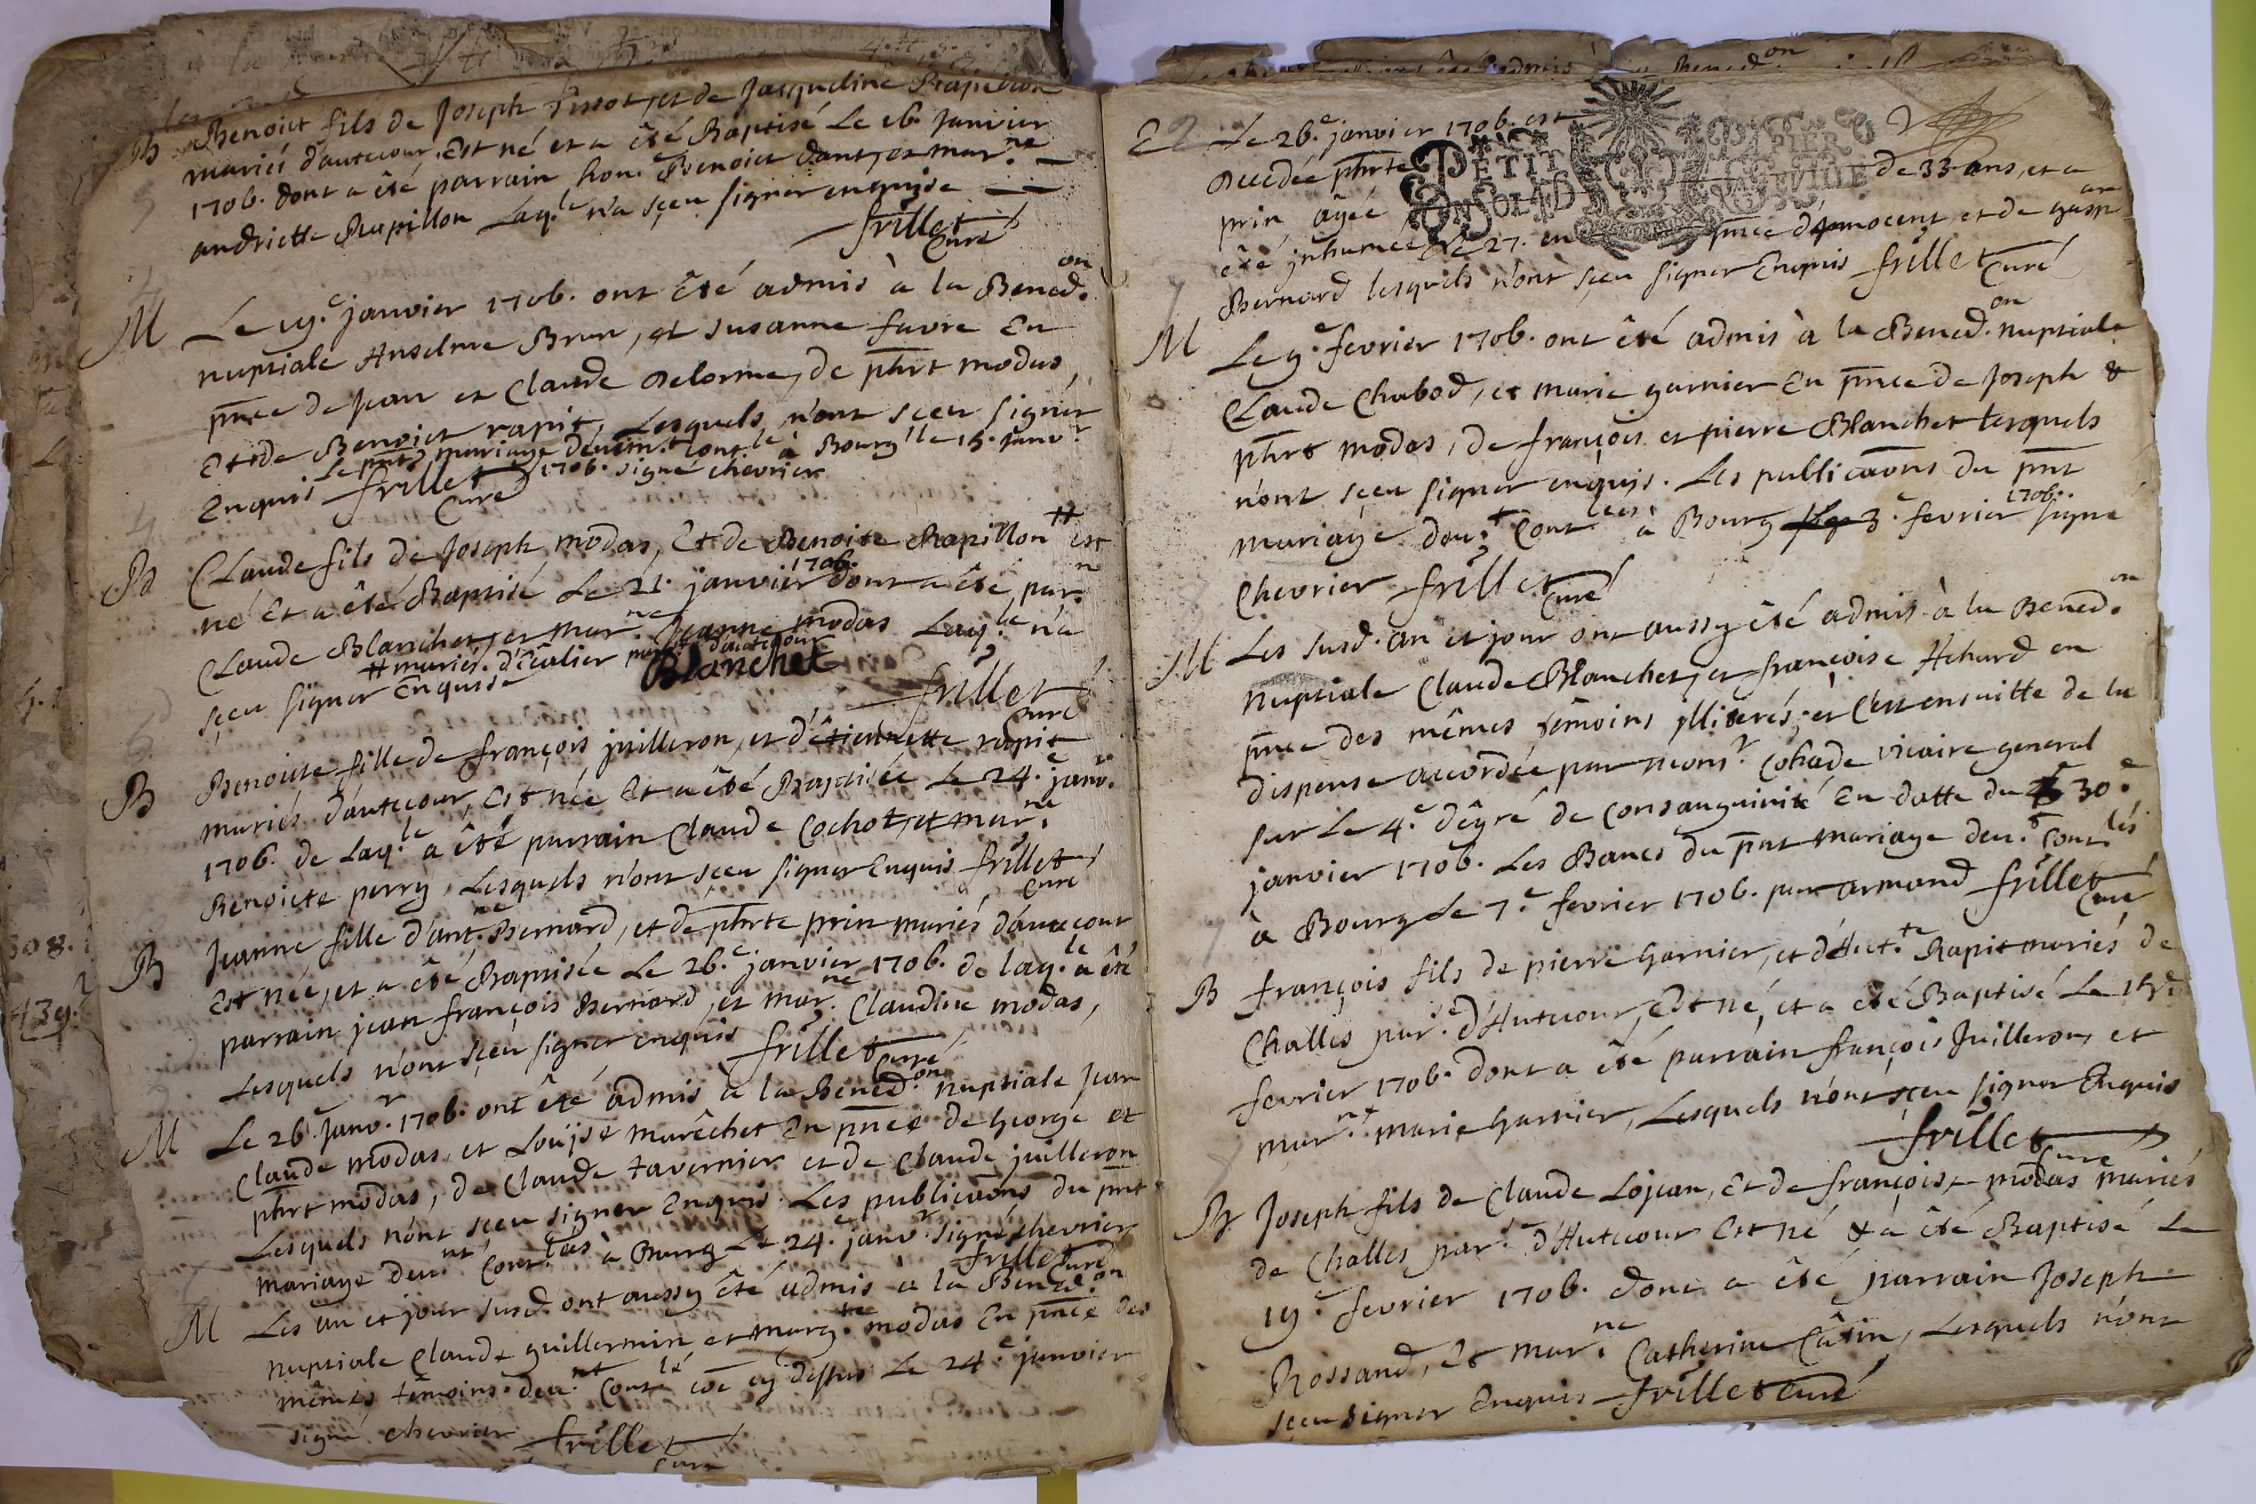 B Benoict fils de Joseph Pissot, et de Jacqueline Rapillon
mariés d'autecour, Est né et a êté Baptisé Le 16. Janvier
1706. dont a êté parrain hon. Benoict dant, et mar.ne
andriette Rapillon Laq.le n'a sçeu signer enquise
frillet
Curé
M Le 19.e janvier 1706. ont êté admis à la Bened.on
nuptiale Anselme Brun, et susanne favre En
pnce de Jean et Claude Delorme, de phrt modas,
Et de Benoict rapit, Lesquels n'ont sçeu signer
Le pnt mariage deuem.t cont.lé à Bourg le 15. janv.r
Enquis frillet 1706. signé chevrier
Curé
B Claude fils de Joseph modas, Et de Benoite Rapillon # est
né Et a êté Baptisé Le 21. janvier 1706. dont a êté par.n
Claude Blanchet, et mar.ne Jeanne modas Laq.le n'a
# mariés d'Êcalier par.sse d'autecour
sçeu signer Enquise Blanchet
frillet
Curé
B Benoicte fille de françois juilleron, et d'êtiennette rapit
mariés d'autecour, Est née Et a êté Baptisée Le 24.e janv.r
1706. de Laq.le a êté parrain Claude Cochot, et mar.ne
Benoicte perry, Lesquels n'ont sçeu signer Enquis frillet
Curé
B Jeanne fille d'ant.ne Bernard, et de phrte prin mariés d'autecour
Est née, et a êté Baptisée Le 26.e janvier 1706. de laq.le a êté
parrain jean françois Bernard, et mar.ne Claudine modas,
Lesquels n'ont sçeu signer enquis frillet
Curé
M Le 26. janv.r 1706. ont êté admis à la Bened.on nuptiale Jean
Claude modas, et Loüjse marêchet En pnce de George et
phrt modas, de Claude tavernier et de Claude juilleron
Lesquels n'ont sçeu signer Enquis. Les publicaons du pnt
mariage deu.nt Cont.lées à Bourg Le 24.e janv.r signé chevrier
frillet Curé
M Les an et jour susd. ont aussy êté admis à la Bened.on
nuptiale Claude guillermin et marg.te modas En pnce des
mêmes têmoins deu.nt Cont.lé coe cy dessus Le 24.e janvier
signé chevrier frillet
Curé
E Le 26.e janvier 1706. est
PETIT PAPIER
Decedée phrte
prin, âgée de 33. ans, et a
êté jnhumée Le 27. en pnce d'Innocent et de gasp.ar
Bernard lesquels n'ont sçeu signer Enquis frillet
Curé
M Le 9.e fevrier 1706. ont êté admis à la Bened.on nuptiale
Claude Chabod, et marie garnier En pnce de Joseph &
phrt modas, de françois et pierre Blanchet lesquels
n'ont sçeu signer enquis. Les publicaons du pnt
mariage deu.t Cont.lées à Bourg 3.e fevrier 1706. signé
Chevrier frillet
Curé
M Les susd. an et jour ont aussy êté admis à la Bened.on
nuptiale Claude Blanchet, et françoise Achard en
pnce des mêmes têmoins jlliterés, et C'est ensuitte de la
dispense accordée par mons.r Cohade vicaire general
sur Le 4.e dêgré de Consanguinité En datte du 30.e
janvier 1706. Les Bancs du pnt mariage deu.t cont.lés
à Bourg Le 7.e fevrier 1706. par armand frillet
Curé
B françois fils de pierre Garnier, et d'Ant.te Rapit mariés de
Challes par.se d'Autecour, Est né, et a êté Baptisé Le 15.e
fevrier 1706. dont a êté parrain françois Juilleron, et
mar.ne marie Garnier, Lesquels n'ont sçeu signer Enquis
frillet
Curé
B Joseph fils de Claude Lojean, Et de françoise modas mariés
de Challes par.se d'Autecour Est né & a êté Baptisé Le
19.e fevrier 1706. dont a êté parrain Joseph
Rossand, Et mar.ne Catherine Câtin, Lesquels n'ont
sçeu signer Enquis frillet Curé